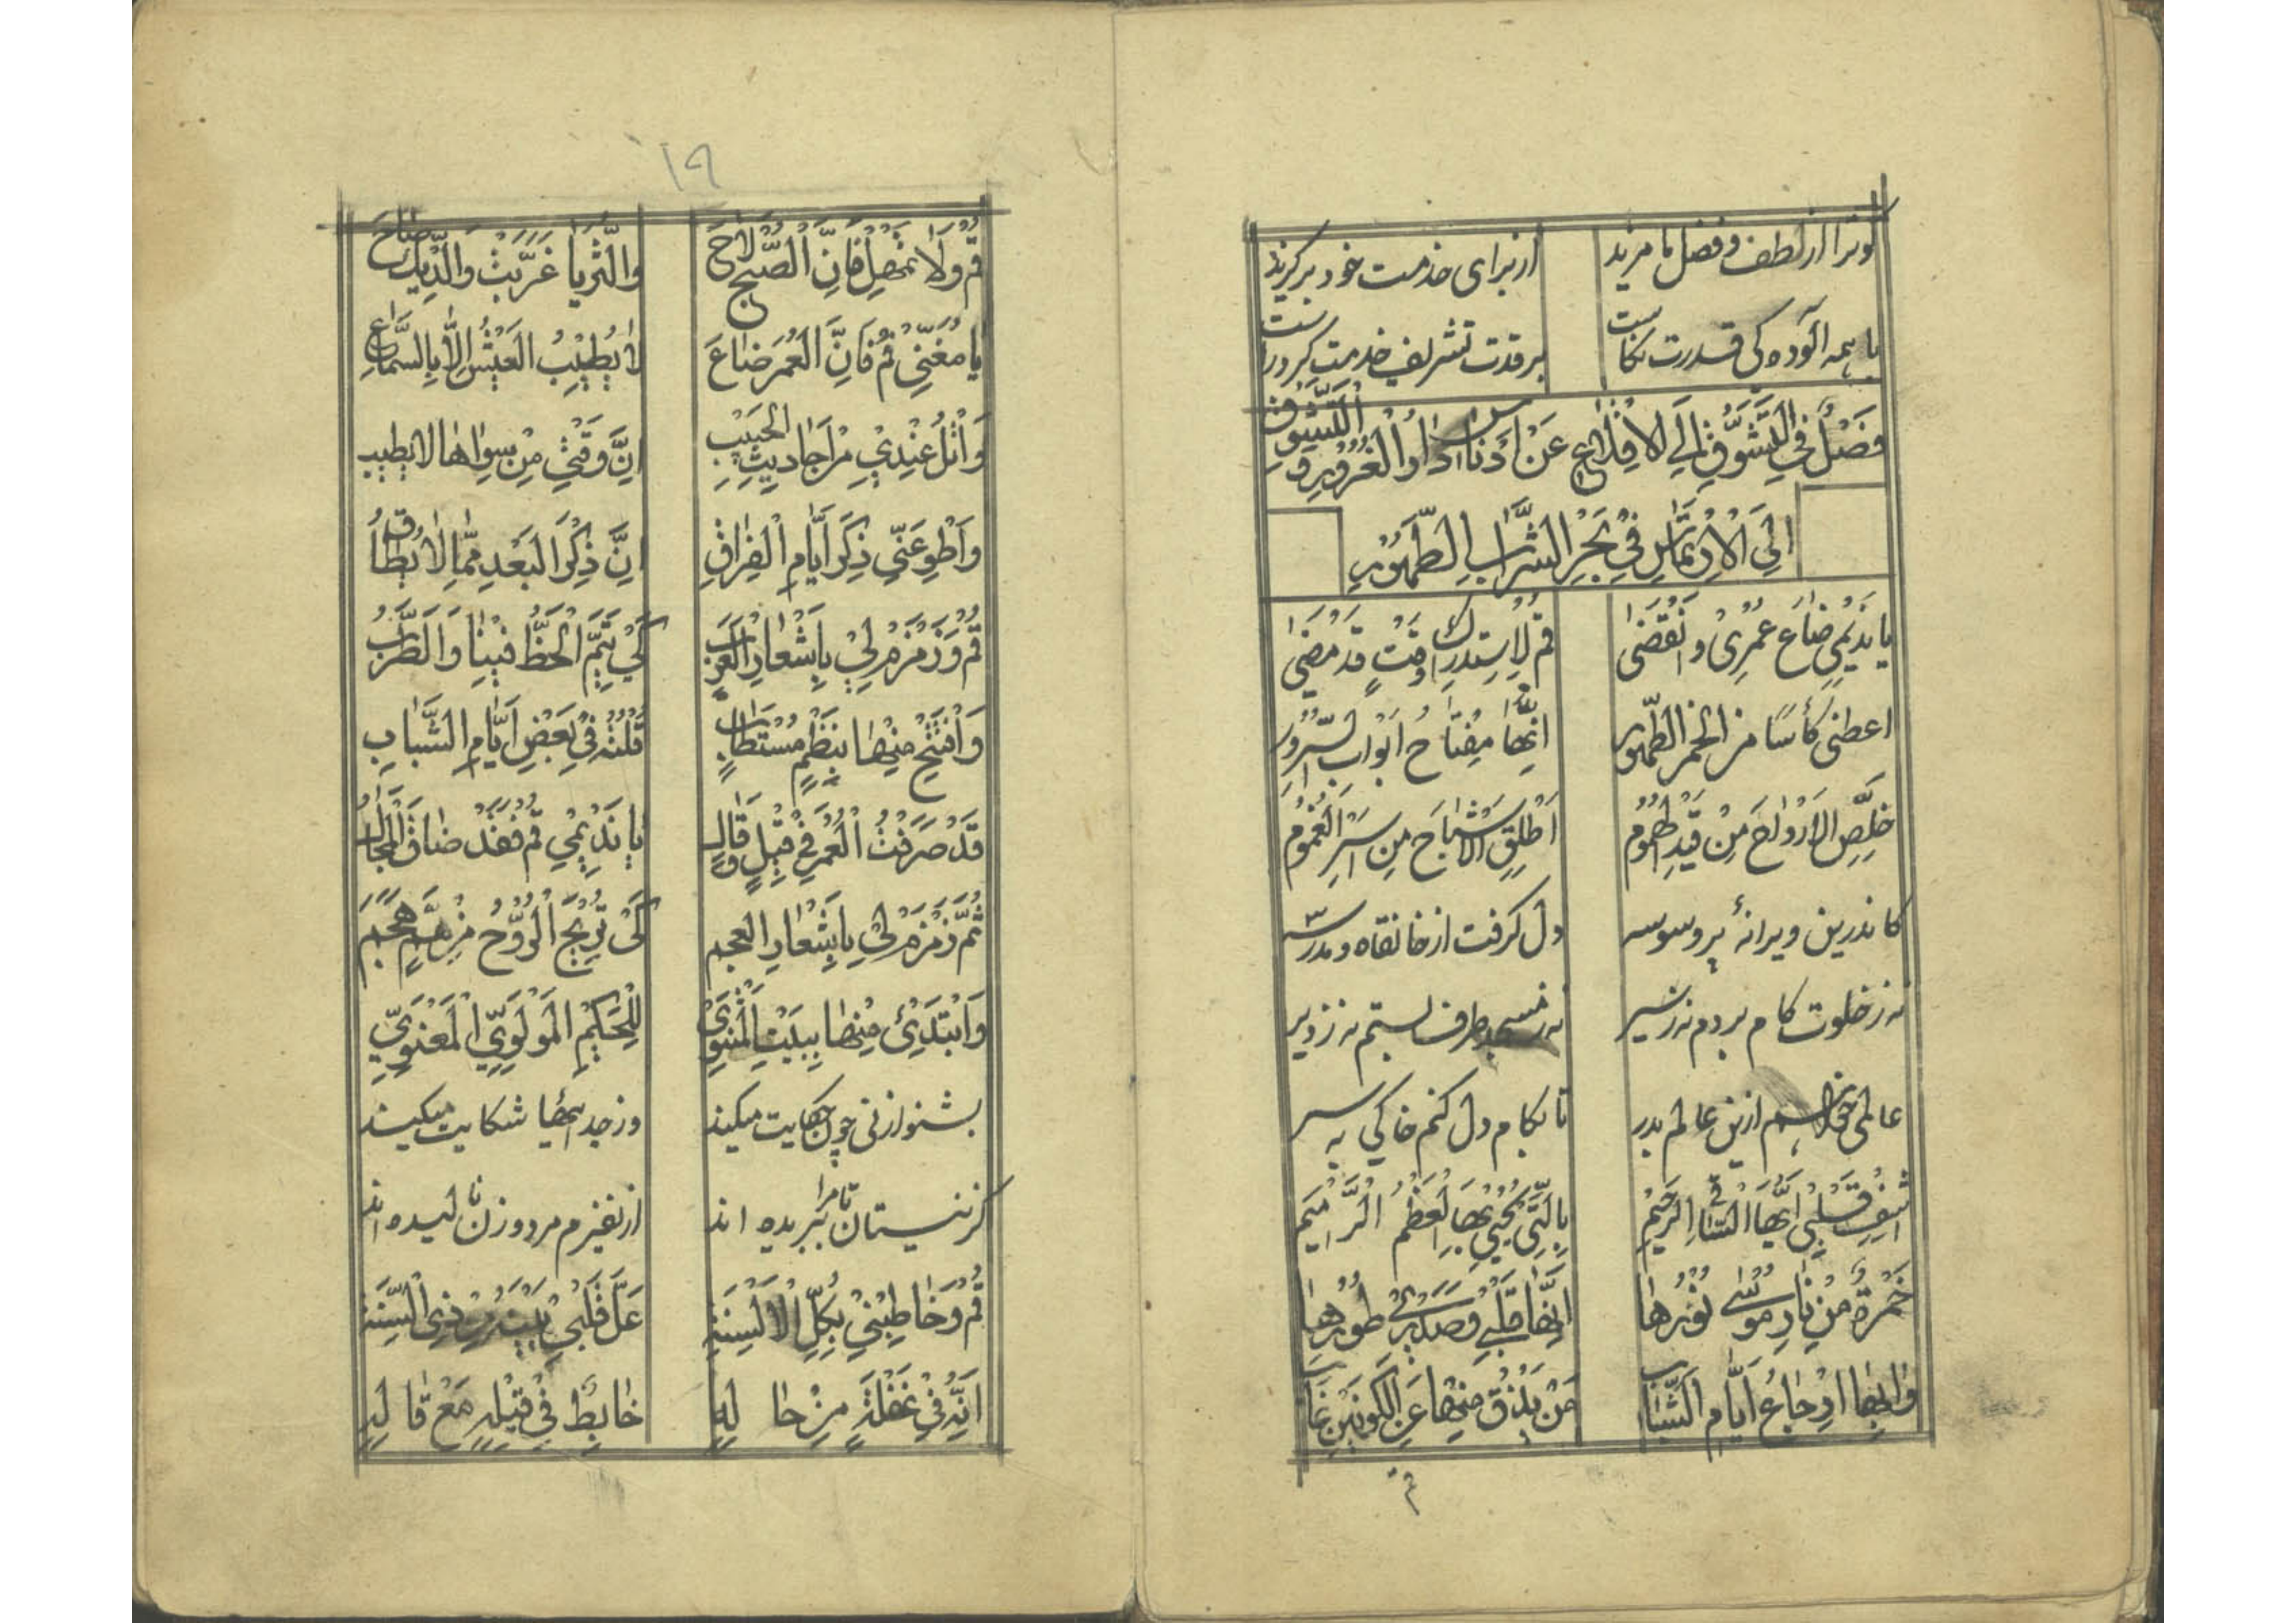 او ترا از لطف و فضل با مزید از برای خدمت خود برگزید
با همه آلوده کی قدرت نکاست بر قدت تشریف خدمت کرد راست
فَصْلٌ فِي التَّشَوُّقِ اِلَى الاِقْلاعِ عَنْ اَدْناسِ دارِ الْغُرُورِ وَ التَّشَوُّقِ
اِلَى الْاِرْتِماسِ فِي بَحْرِ الشَّرابِ الطَّهُورِ
يا نَدِيمِي ضاعَ عُمْرِي وَانْقَضى قُمْ لِاسْتِدْراكِ وَقْتٍ قَدْ مَضى
اعطنى كَأْسًا من الخمر الطَّهُور اِنَّها مِفْتاحُ اَبْوابِ السُّرُورِ
خَلِّصِ الاَرْواحَ مِنْ قَيْدِ الْهُمُومِ اَطْلِقِ الاَشْباحَ مِنْ اَسْرِ الْغُمُومِ
کاندرین ویرانهٔ پر وسوسه دل گرفت از خانقاه و مدرسه
نه ز خلوت کام بردم نه ز سیر نه ز مسجد طرف بستم نه ز دیر
عالمی خواهم ازین عالم بدر تا بکام دل کنم خاکی به سر
اِشْفِ قَلْبِي اَيُّهَا السّاقِي الرَّحِيمْ بِالَّتِي يُحْيِي بِهَا الْعَظْمُ الرَّمِيمْ
خَمْرَةٌ مِنْ نارِ مُوسى نُورُها اِنَّها قَلْبِي وَ صَدْرِي طُورُها
قم
١٩
قُمْ وَلا تُمْهِلْ فَاِنَّ الصُّبْحَ لاحَ وَالثُّرَيّا غَرَّبَتْ وَالدِّيكُ صاحَ
يا مُغَنِّي قُمْ فَاِنَّ الْعُمْرَ ضاعَ لا يُطِيبُ الْعَيْشُ اِلّا بِالسَّماعِ
وَاتْلُ عِنْدِي مِنْ اَحادِيثِ الْحَبِيبِ اِنَّ وَقْتِي مِنْ سِواها لا يَطِيبُ
وَاطْوِ عَنِّي ذِكْرَ اَيّامِ الْفِراقِ اِنَّ ذِكْرَ الْبُعْدِ مِمّا لا يُطاقُ
قُمْ وَ زَمْزِمْ لِي بِاَشْعارِ الْعَرَبِ كَيْ يَتِمَّ الْحَظُّ فِينا وَالطَّرَبُ
وَافْتَتِحْ مِنْها بِنَظْمٍ مُسْتَطابٍ قُلْتُهُ فِي بَعْضِ اَيّامِ الشَّبابِ
قَدْ صَرَفْتُ الْعُمْرَ فِي قِيلٍ وَ قالٍ يا نَدِيمِي قُمْ فَقَدْ ضاقَ الْمَجالُ
ثُمَّ زَمْزِمْ لِي بِاَشْعارِ الْعَجَمِ كَيْ تُرِيحَ الرُّوحُ مِنْ هَمٍّ هَجَمَ
وَابْتَدِئْ مِنْها بِبَيْتِ الْمَثْنَوِي لِلْحَكِيمِ الْمَوْلَوِيِّ الْمَعْنَوِيِّ
بشنو از نی چون حکایت میکند وز جدائیها شکایت میکند
کز نیستان تا مرا ببریده اند از نفیرم مرد و زن نالیده اند
قُمْ وَ خاطِبْنِي بِكُلِّ الْاَلْسِنَةِ عَلَّ قَلْبِي يَنْتَبِهْ مِنْ ذِي السِّنَةِ
اِنَّهُ فِي غَفْلَةٍ مِنْ حالِهِ خابِطٌ فِي قِيلِهِ مَعْ قالِهِ